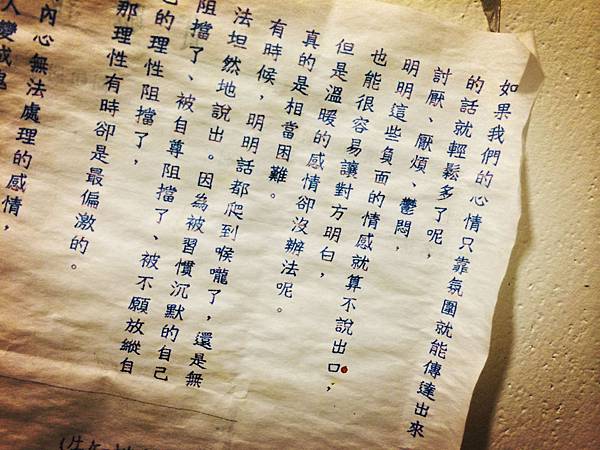 如果我們的心情只靠氛圍就能傳達出來
的話就輕鬆多了呢，
討厭、厭煩、鬱悶，
明明這些負面的情感就算不說出口，
也能很容易讓對方明白，
但是溫暖的感情卻沒辦法呢。
真的是相當困難。
有時候，明明話都爬到喉嚨了，還是無
法坦然地說出。因為被習慣沉默的自己
阻擋了、被自尊阻擋了、被不願放縱自
己的理性阻擋了，
那理性有時卻是最偏激的。
內心無法處理的感情，
人變成鬼